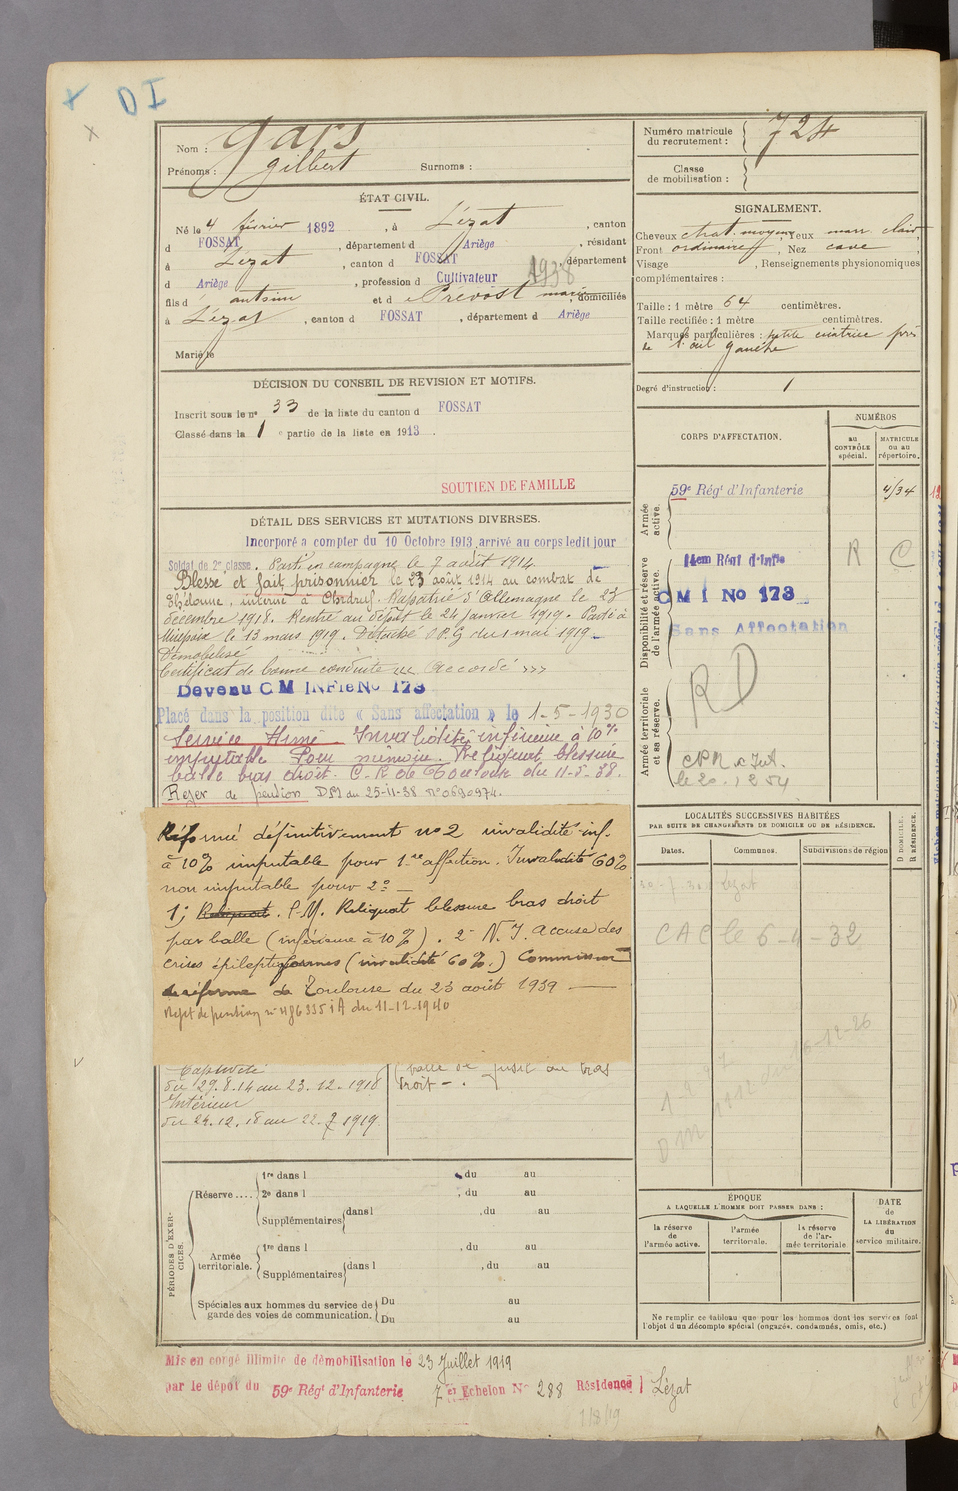 DI
Nom : Gars
Prénoms : Gilbert Surnoms :
Numéro matricule du recrutement : 724
Classe de mobilisation :
ÉTAT CIVIL.
Né le 4 février 1892, à Lézat, canton
d FOSSAT, département d Ariège, résidant
à Lézat, canton d FOSSAT, département
d Ariège, profession d Cultivateur 1938
fils d' antoine et d e Prévost marie, domiciliés
à Lézat, canton d FOSSAT, département d Ariège
Marié le
SIGNALEMENT.
Cheveux chat. moyens, Yeux marr. clair,
Front ordinaire, Nez cave,
Visage , Renseignements physionomiques
complémentaires :
Taille : 1 mètre 64 centimètres.
Taille rectifiée : 1 mètre centimètres.
Marques particulières : petite cicatrice près
de l'œil gauche
Degré d'instruction : 1
DÉCISION DU CONSEIL DE REVISION ET MOTIFS.
Inscrit sous le n° 33 de la liste du canton d FOSSAT
Classé dans la 1 e partie de la liste en 1913.
SOUTIEN DE FAMILLE
DÉTAIL DES SERVICES ET MUTATIONS DIVERSES.
Incorporé a compter du 10 Octobre 1913, arrivé au corps ledit jour
Soldat de 2e classe. Parti en campagne le 7 août 1914.
Blessé et fait prisonnier le 23 août 1914 au combat de
interné à Ohrdruf. Rapatrié d'Allemagne le 23
décembre 1918. Rentré au dépôt le 24 janvier 1919. Passé à
Mirepoix le 13 mars 1919. Détaché du 1 mai 1919.
Démobilisé
Certificat de bonne conduite "" Accordé »»
Devenu CM INFie No 173
Placé dans la position dite « Sans affectation » le 1-5-1930
Service Armé Invalidité inférieure à 10%
imputable Pour mémoire. Reliquat blessure
balle bras droit. C.R de Toulouse du 11-5-38.
Rejet de pension DM du 25-11-38 N° 0690974.
Réformé définitivement n° 2 invalidité inf.
à 10% imputable pour 1re affection. Invalidité 60%
non imputable pour 2° —
1°; Reliquat. P.M. Reliquat blessure bras droit
par balle (inférieure à 10%). 2° N.I. Accuse des
crises épileptiformes (invalidité 60%.) Commission
de réforme de Toulouse du 23 août 1939 —
Rejet de pension n° 486335 i A du 11-12-1940
Captivité
du 29.8.14 au 23.12.1918
Intérieur
du 24.12.18 au 22.7.1919
balle de fusil au bras
droit - .
CORPS D'AFFECTATION.
NUMÉROS
au CONTRÔLE spécial.
MATRICULE ou au répertoire.
Armée active.
59e Régt d'Infanterie 4134
Disponibilité et réserve de l'armée active.
R C
CMI No 173
Sans Affectation
Armée territoriale et sa réserve.
RD
LOCALITÉS SUCCESSIVES HABITÉES
PAR SUITE DE CHANGEMENTS DE DOMICILE OU DE RÉSIDENCE.
Dates. Communes. Subdivisions de région
D DOMICILE. R RÉSIDENCE.
Lézat
CAC le 6-4-32
16-12-26
DM
PÉRIODES D'EXERCICES.
Réserve .... 1re dans l , du au
2e dans l , du au
Supplémentaires dans l , du au
Armée territoriale. 1re dans l , du au
Supplémentaires dans l , du au
Spéciales aux hommes du service de garde des voies de communication. Du au
Du au
ÉPOQUE
A LAQUELLE L'HOMME DOIT PASSER DANS :
la réserve de l'armée active.
l'armée territoriale.
la réserve de l'armée territoriale
DATE de LA LIBÉRATION du service militaire.
Ne remplir ce tableau que pour les hommes dont les services font
l'objet d'un décompte spécial (engagés, condamnés, omis, etc.)
Mis en congé illimité de démobilisation le 23 Juillet 1919
par le dépôt du 59e Régt d'Infanterie 7 e Echelon N° 288 Résidence Lézat
1/8/19